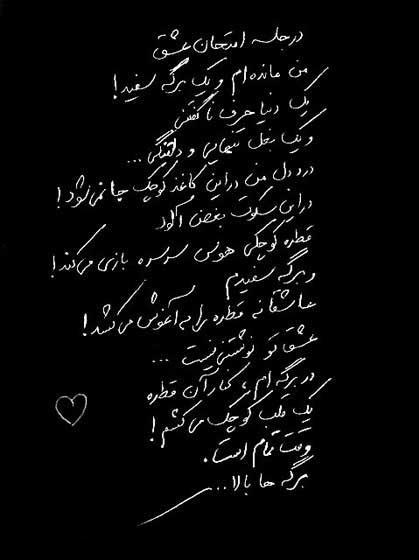 در جلسه امتحان عشق
من مانده‌ام و یک برگه سفید!
یک دنیا حرف ناگفتنی
و یک بغل تنهایی و دلتنگی...
درد دل من در این کاغذ کوچک جا نمی‌شود!
در این سکوت بغض آلود
قطره کوچکی هوس سرسره بازی می‌کند!
و برگه سفیدم
عاشقانه قطره را به آغوش می‌کشد!
عشق تو نوشتنی نیست...
در برگه‌ام، کنار آن قطره
یک قلب کوچک می‌کشم!
وقت تمام است.
برگه‌ها بالا...